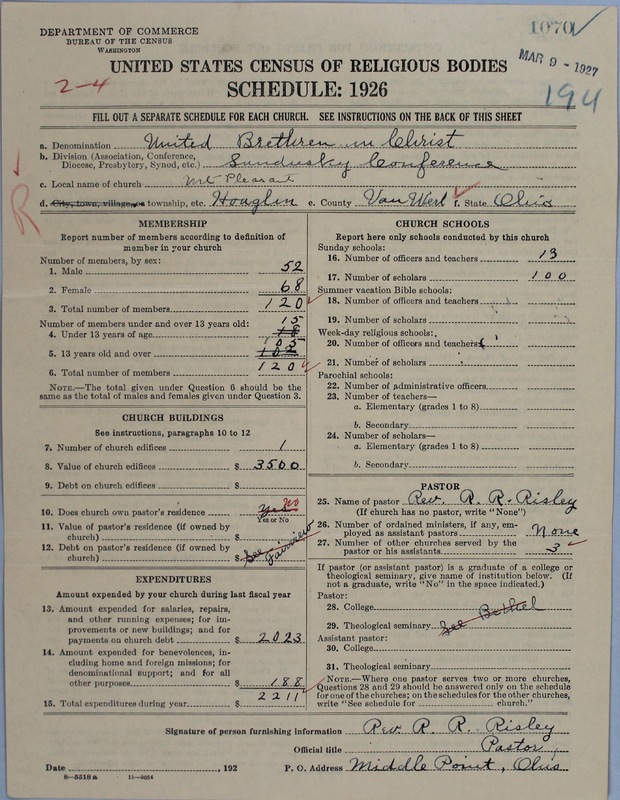 DEPARTMENT OF COMMERCE
BUREAU OF THE CENSUS
WASHINGTON
1070
MAR 9 - 1927
194
2-4
UNITED STATES CENSUS OF RELIGIOUS BODIES
SCHEDULE: 1926
FILL OUT A SEPARATE SCHEDULE FOR EACH CHURCH. SEE INSTRUCTIONS ON THE BACK OF THIS SHEET
a. Denomination United Brethren in Christ
b. Division (Association, Conference,
Diocese, Presbytery, Synod, etc.) Sandusky Conference
c. Local name of church Mt Pleasant
R
d. City, town, village, or township, etc. Hoaglin e. County Van Wert f. State Ohio
MEMBERSHIP
Report number of members according to definition of
member in your church
Number of members, by sex:
1. Male 52
2. Female 68
3. Total number of members 120
Number of members under and over 13 years old:
15
4. Under 13 years of age 18
105
5. 13 years old and over 102
6. Total number of members 120
NOTE.—The total given under Question 6 should be
the same as the total of males and females given under Question 3.
CHURCH BUILDINGS
See instructions, paragraphs 10 to 12
7. Number of church edifices 1
8. Value of church edifices $ 3500
9. Debt on church edifices $
10. Does church own pastor's residence Yes no
Yes or No
11. Value of pastor's residence (if owned by
church) $
12. Debt on pastor's residence (if owned by
church) $ See Fairview
EXPENDITURES
Amount expended by your church during last fiscal year
13. Amount expended for salaries, repairs,
and other running expenses; for im-
provements or new buildings; and for
payments on church debt $ 2023
14. Amount expended for benevolences, in-
cluding home and foreign missions; for
denominational support; and for all
other purposes $ 188
15. Total expenditures during year $ 2211
CHURCH SCHOOLS
Report here only schools conducted by this church
Sunday schools:
16. Number of officers and teachers 13
17. Number of scholars 100
Summer vacation Bible schools:
18. Number of officers and teachers
19. Number of scholars
Week-day religious schools:
20. Number of officers and teachers
21. Number of scholars
Parochial schools:
22. Number of administrative officers
23. Number of teachers—
a. Elementary (grades 1 to 8)
b. Secondary
24. Number of scholars—
a. Elementary (grades 1 to 8)
b. Secondary
PASTOR
25. Name of pastor Rev. R. R. Risley
(If church has no pastor, write "None")
26. Number of ordained ministers, if any, em-
ployed as assistant pastors None
27. Number of other churches served by the
pastor or his assistants 3
If pastor (or assistant pastor) is a graduate of a college or
theological seminary, give name of institution below. (If
not a graduate, write "No" in the space indicated.)
Pastor:
28. College
29. Theological seminary See Bethel
Assistant pastor:
30. College
31. Theological seminary
NOTE.—Where one pastor serves two or more churches,
Questions 28 and 29 should be answered only on the schedule
for one of the churches; on the schedules for the other churches,
write "See schedule for church."
Signature of person furnishing information Rev. R. R. Risley
Official title Pastor
Date , 192 P. O. Address Middle Point, Ohio
8—5518a 11—9054